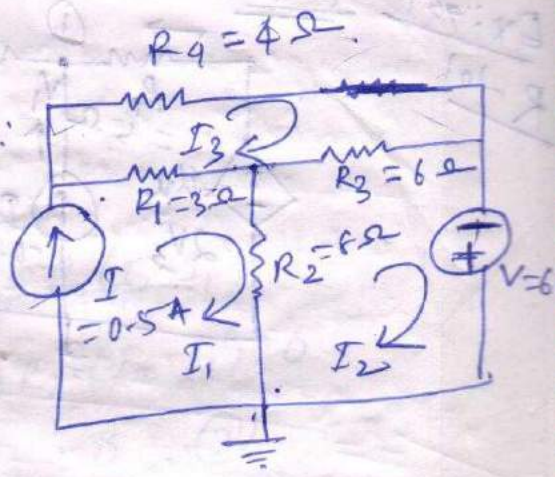 R4 = 4 Ω.
I3
R1 = 3Ω
R3 = 6 Ω
R2 = 8Ω
I
= 0.5 A
I1
I2
V=6